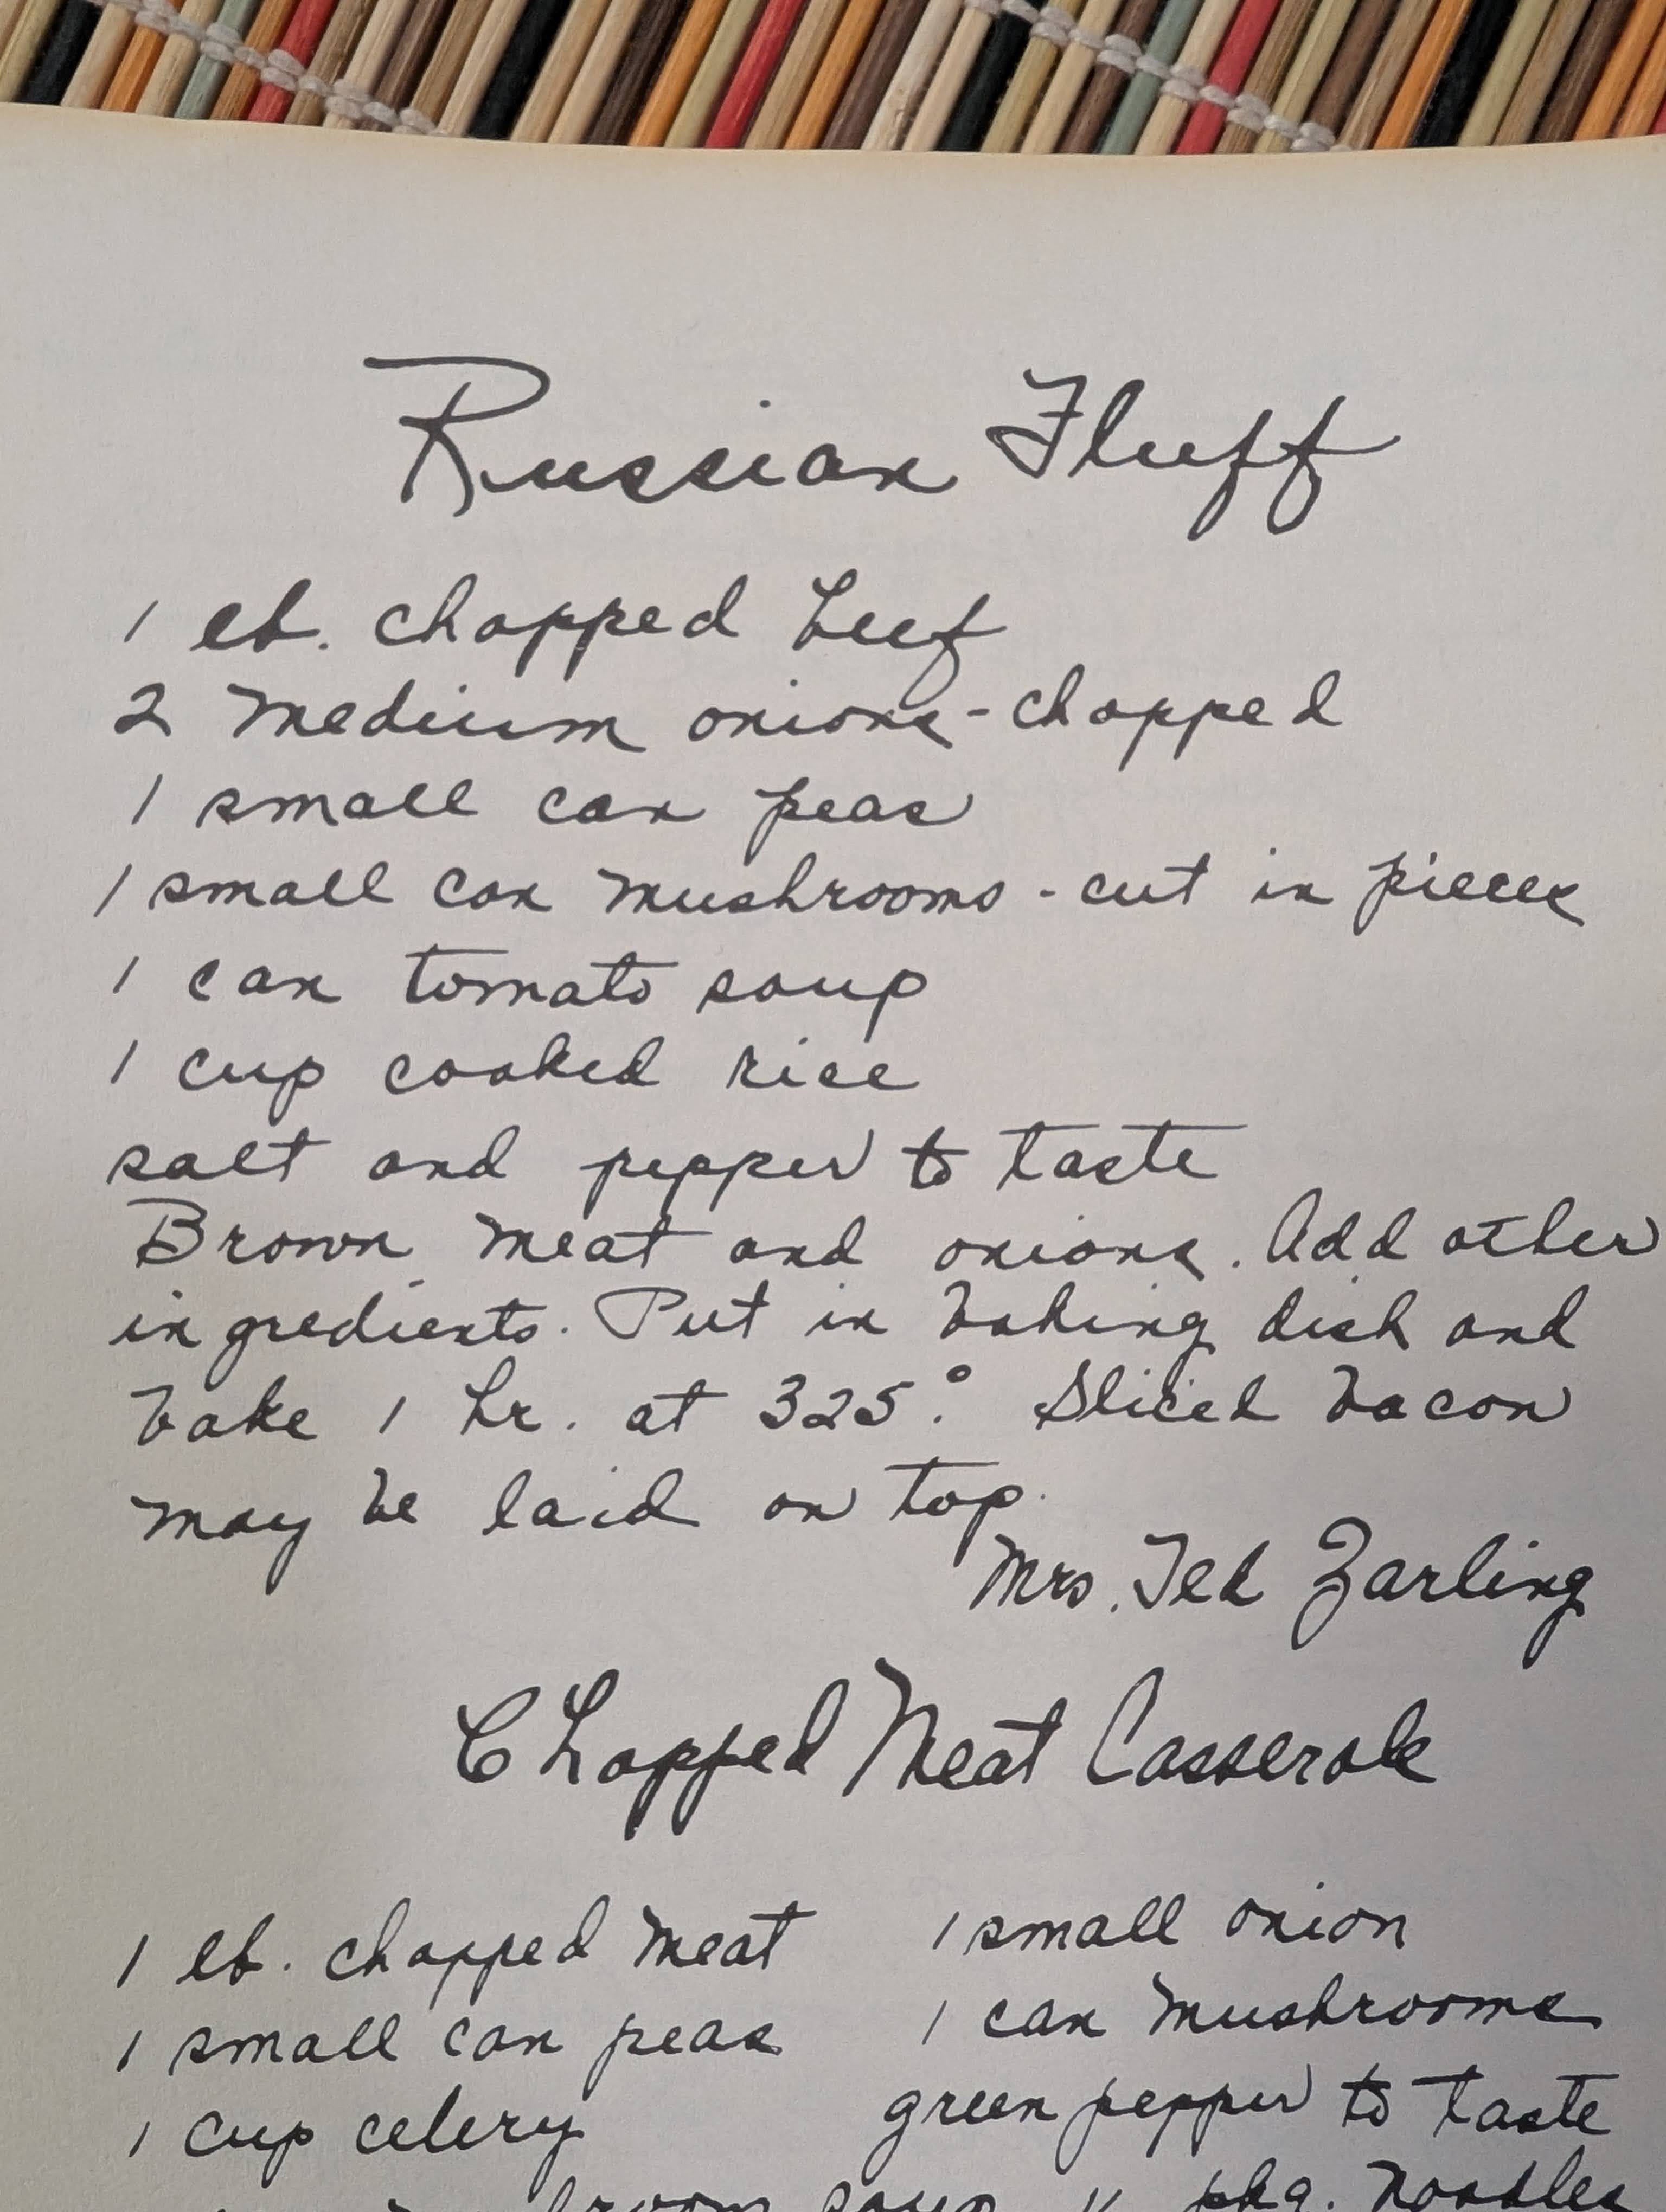 Russian Fluff
1 lb. chopped beef
2 medium onions - chopped
1 small can peas
1 small can mushrooms - cut in pieces
1 can tomato soup
1 cup cooked rice
salt and pepper to taste
Brown meat and onions. Add other
ingredients. Put in baking dish and
bake 1 hr. at 325°. Sliced bacon
may be laid on top.
Mrs. Ted Zarling
Chopped Meat Casserole
1 lb. chopped meat 1 small onion
1 small can peas 1 can mushrooms
1 cup celery green pepper to taste
soup pkg. noodles